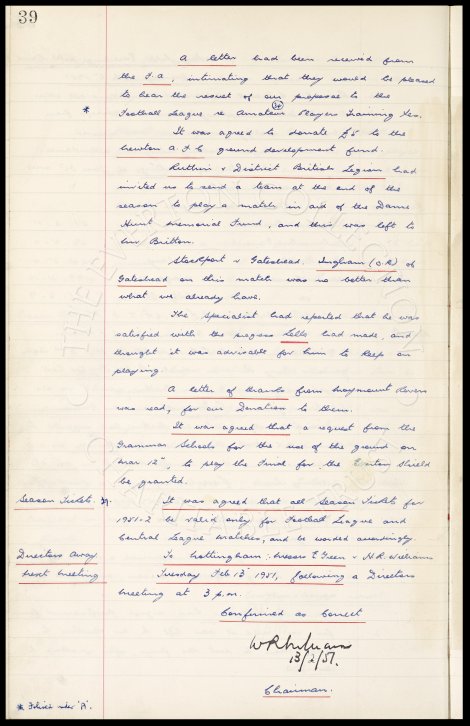 39
A letter had been received from
the F.A, intimating that they would be pleased
to hear the result of our proposal to the
* Football League re Amateur Players Training Fees.
It was agreed to donate £5 to the
Newton A.F.C ground development fund.
Ruthin & District British Legion had
invited us to send a team at the end of the
season to play a match in aid of the Dame
Hunt Memorial Fund, and this was left to
Mr Britton.
Stockport v Gateshead. Ingham (O.R) of
Gateshead on this match was no better than
what we already have.
The Specialist had reported that he was
satisfied with the progress Lello had made, and
thought it was advisable for him to keep on
playing.
A letter of thanks from Maymount Rovers
was read, for our Donation to them.
It was agreed that a request from the
Grammar Schools for the use of the ground on
Mar 12th, to play the Final for the Shield
be granted.
Season Tickets. It was agreed that all Season Tickets for
1951-2 be valid only for Football League and
Central League matches, and be worded accordingly
Directors Away To Nottingham: Messrs E. Green & H.R. Williams
Next Meeting Tuesday Feb 13th 1951, following a Directors
Meeting at 3 p.m.
Confirmed as Correct
13/2/51.
Chairman.
* under 'A'.